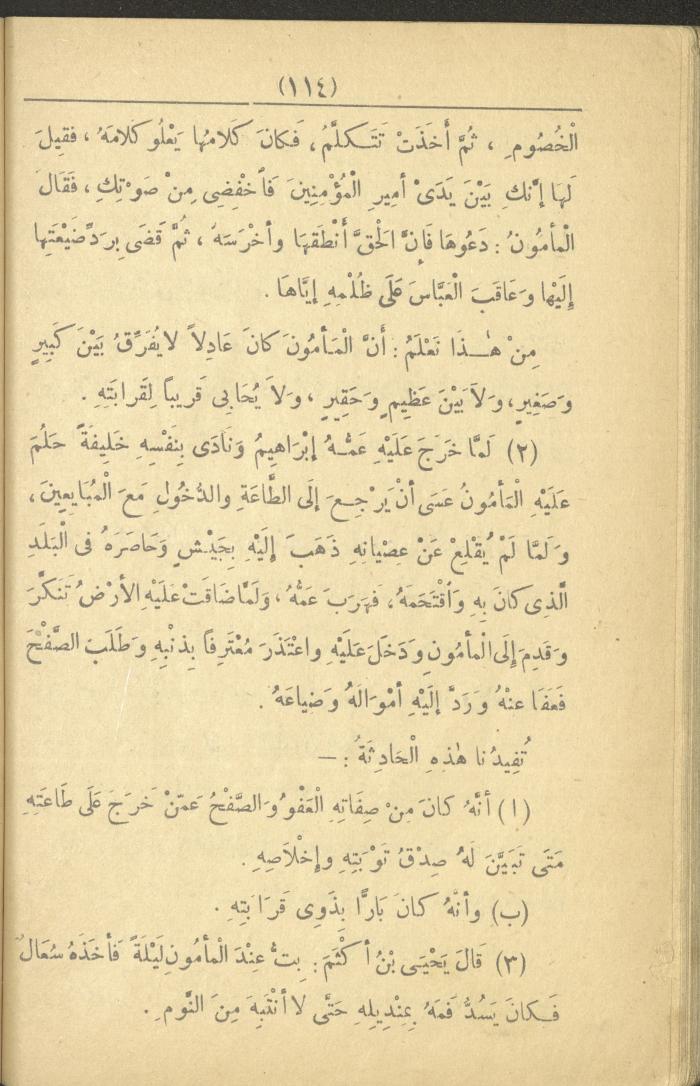 (١١٤)
الْخُصُومِ ، ثُمَّ أَخَذَتْ تَتَكلَّمُ ، فَكانَ كَلامُها يَعْلُو كَلامَهُ ، فقيلَ
لَهَا إِنَّكِ بَيْنَ يَدَىْ أمِيرِ الْمُؤْمِنِينَ فَاخْفِضِى مِنْ صَوْتِكِ ، فَقَالَ
الْمأمُونُ : دَعُوهَا فَإنَّ الْحَقَّ أَنْطَقَهَا وأخْرَسَهُ ، ثُمَّ قَضَى بِرَدِّ ضَيْعَتِها
إِلَيْها وَعَاقَبَ الْعَبَّاسَ عَلَى ظُلْمِهِ إيَّاهَا .
مِنْ هٰـذَا نَعْلَمُ : أَنَّ الْمَأمُونَ كانَ عَادِلاً لا يُفَرِّقُ بَيْنَ كَبِيرٍ
وَصَغِيرٍ ، وَلاَ بَيْنَ عَظِيمٍ وَحَقِيرٍ ، وَلاَ يُحَابِى قَرِيباً لِقَرابَتِهِ .
(٢) لَمَّا خَرَجَ عَلَيْهِ عَمُّهُ إبْرَاهِيمُ وَنَادَى بِنَفْسِهِ خَلِيفَةً حَلُمَ
عَلَيْهِ الْمَأمُونُ عَسَى أنْ يَرْجِعَ إلَى الطَّاعَةِ والدُّخُولِ مَعَ الْمُبَايِعِينَ ،
وَلَمَّا لَمْ يُقْلِعْ عَنْ عِصْيانِهِ ذَهَبَ إلَيْهِ بِجَيْشٍ وَحَاصَرَهُ فى الْبَلَدِ
الَّذِى كانَ بِهِ وَاقْتَحَمَهُ ، فَهَرَبَ عَمُّهُ ، وَلَمَّا ضَاقَتْ عَلَيْهِ الأرْضُ تَنَكَّرَ
وَقَدِمَ إلَى الْمأمُونِ وَدَخَلَ عَلَيْهِ واعْتَذَرَ مُعْتَرِفاً بِذَنْبِهِ وَطَلَبَ الصَّفْحَ
فَعَفَا عنْهُ وَرَدَّ إلَيْهِ أمْوَالَهُ وَضِياعَهُ .
تُفِيدُنا هٰذِهِ الْحَادِثَةُ : —
(ا) أنَّهُ كانَ مِنْ صِفَاتِهِ الْعَفْوُ وَالصَّفْحُ عَمَّنْ خَرَجَ عَلَى طَاعَتِهِ
مَتَى تَبَيَّنَ لَهُ صِدْقُ تَوْبَتِهِ وإخْلاَصِهِ .
(ب) وأنَّهُ كانَ بَارًّا بِذَوِى قَرَابَتِهِ .
(٣) قَالَ يَحْيَى بْنُ أكْثَمَ : بِتُّ عِنْدَ الْمأمُونِ لَيْلَةً فَأخَذَهُ سُعَالٌ
فَكانَ يَسُدُّ فَمَهُ بِمِنْدِيلِهِ حَتَّى لا أنْتَبِهَ مِنَ النَّومِ .